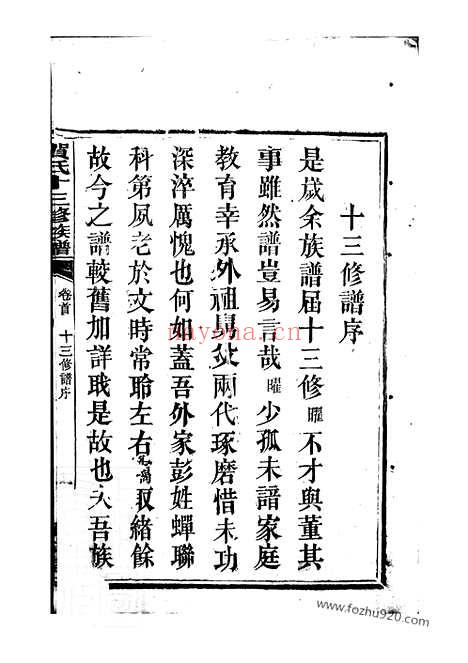 十三修譜序
是歲余族譜屆十三修曜不才與董其
事雖然譜豈易言哉曜少孤未諳家庭
教育幸承外祖舅父兩代琢磨惜未功
深淬厲愧也何如蓋吾外家彭姓蟬聯
科第夙老於文時常聆左右竊取緒餘
故今之譜較舊加詳職是故也夫吾族
賀氏十三修族譜
卷首 十三修譜序
nayona.cn
www.fozhu920.com